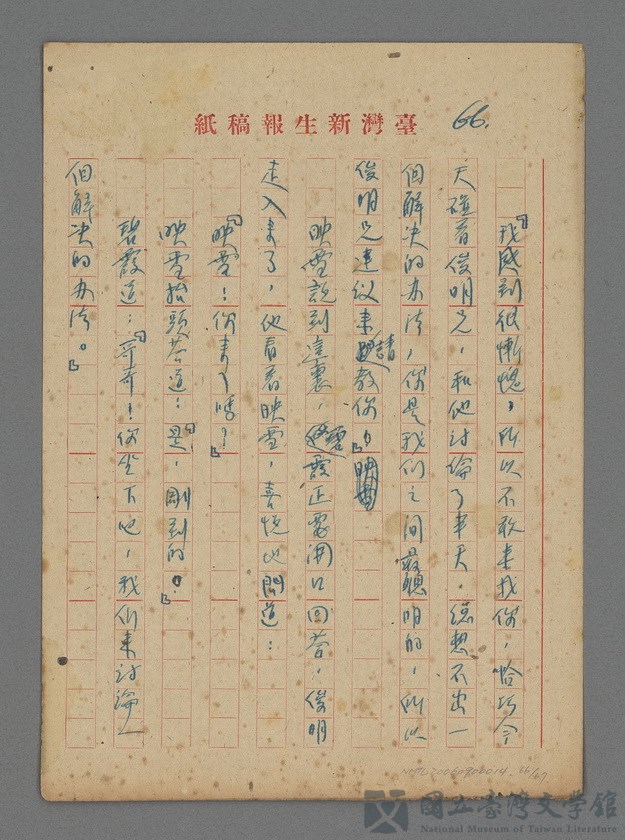 66.
臺灣新生報稿紙
「我感到很慚愧，所以不敢來找你，恰巧今
天碰着俊明兄，和他討論了半天，總想不出一
個解決的办法，你是我们之间最聰明的，所以
俊明兄建议來請教你。」
映雪說到這裏，碧霞正要開口回荅，俊明
走入來了，他看着映雪，喜悅地問道：
「映雪！你來了嗎？」
映雪抬頭荅道：「是，剛到的。」
碧霞道：「哥哥！你坐下吧，我们來討論一
個解決的办法。」
NMTL20060900014_36/67
國立臺灣文学館
National Museum of Taiwan Literature